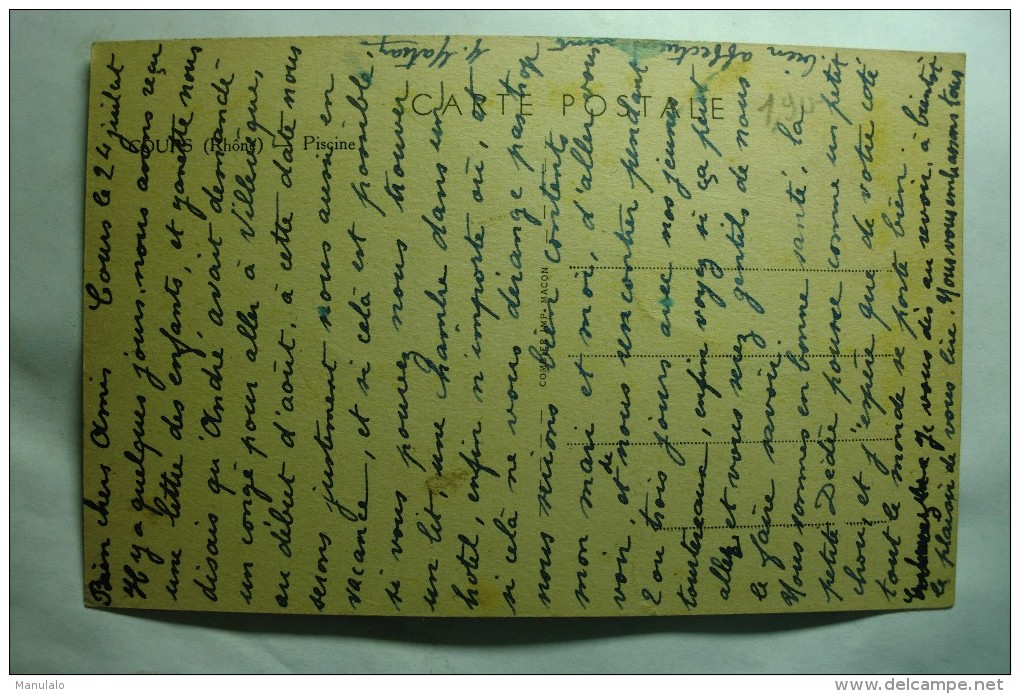 CARTE POSTALE
COURS (Rhône) — Piscine
COMBIER IMP. MACON
190
Bien chers Amis Cours le 24 juillet
Il y a quelques jours, nous avons reçu
une lettre des enfants, et ganette nous
disais qu'André avait demandé
un congé pour aller à Villeurque,
au début d'août, à cette date nous
serons justement nous aussi en
vacance, et si celà est possible
si vous pouvez nous trouver
un lit, une chambre dans un
hotel, enfin n'importe où, et
si celà ne vous dérange pas trop
nous serions bien contents
mon mari et moi, d'aller vous
voir, et de nous rencontrer pendant
2 ou trois jours avec nos jeunes
tourtereaux, enfin voyez si ça peut
aller et vous serez gentils de nous
le faire savoir.
Nous sommes en bonne santé, la
petite Dédée pousse comme un petit
chou, et j'espère que de votre côté
tout le monde se porte bien.
Je vous dis au revoir, à bientôt
le plaisir de vous lire. Nous vous embrassons tous
bien affectueusement
Manulalo
www.delcampe.net